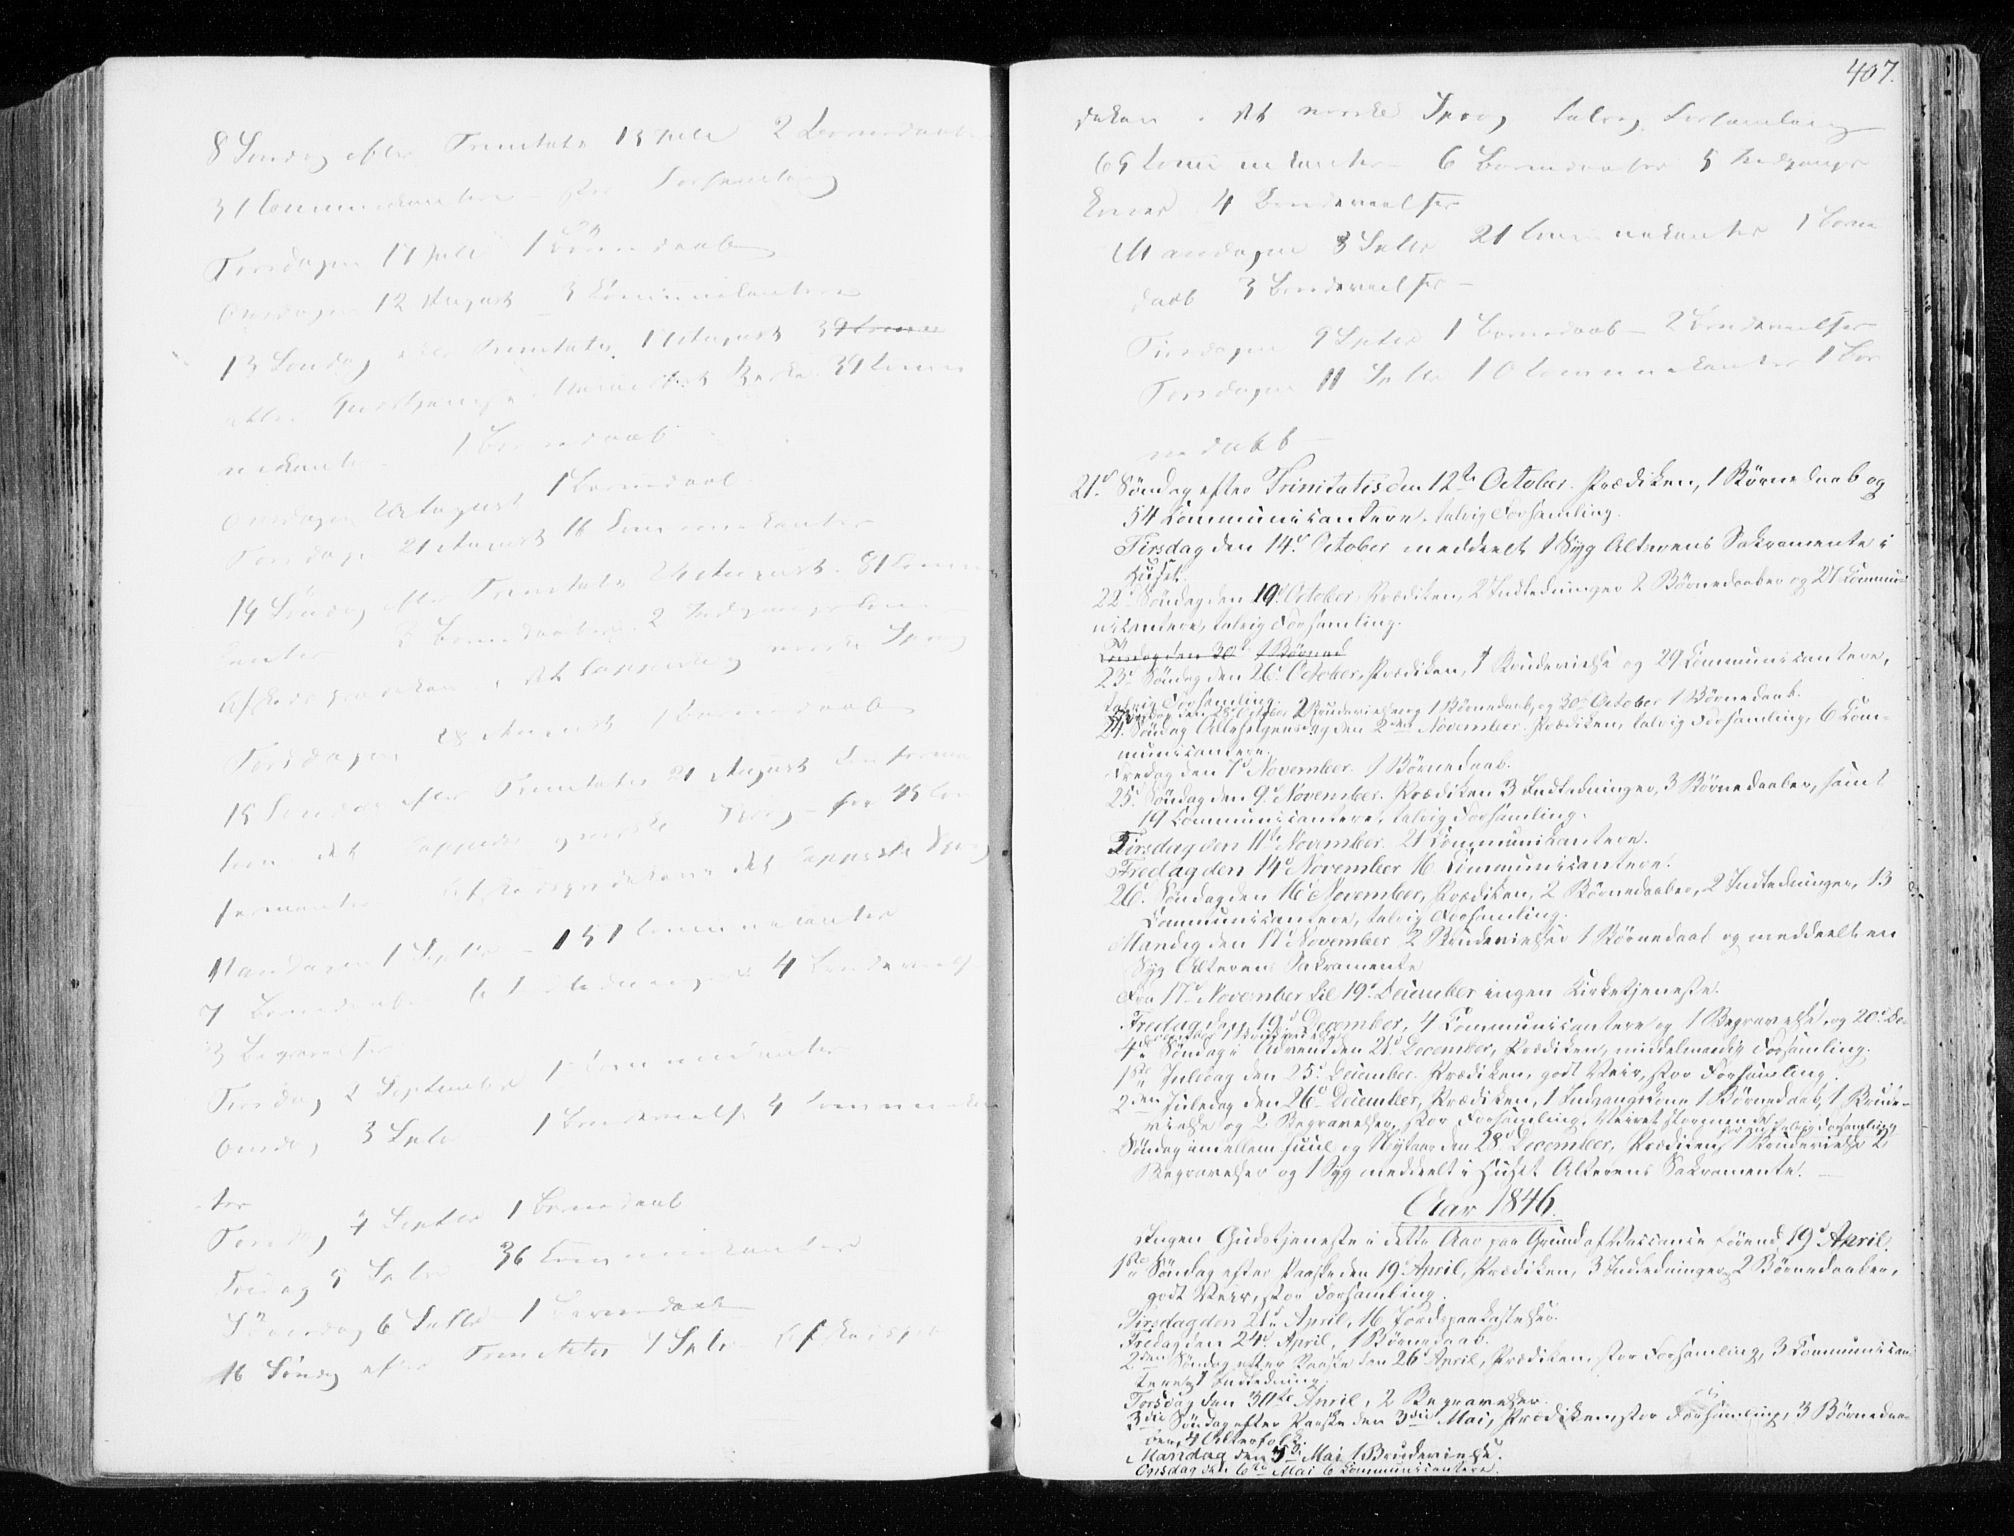 8 Søndag efter Trinitatis 13 Juli 2 Børnedaab
31 Communicantere - stor Forsamling
Torsdagen 17 Juli 1 Børnedaab
Onsdagen 12 August 3 Communicantere
13 Søndag efter Trinitatis 17 August 39 Comm
39 Commu
nicanter 1 Børnedaab
Onsdagen 20 August 1 Børnedaab
Torsdagen 21 August 16 Communicanter
14 Søndag efter Trinitatis 24 August 81 Commu
canter 3 Børnedaaber 2 Indgangskoner
Afskedsprædiken i det lappiske og norske Sprog
Torsdagen 28 August 1 Børnedaab
15 Søndag efter Trinitatis 31 August Confirma
tion det lappiske og norske Sprog - for 45 Con
firmanter Afskedsprædiken i det lappiske Sprog
Mandagen 1 Septbr - 151 Communicanter
7 Børnedaab 4 Brudevielser
3 Begravelser
Tirsdag 2 September 1 Communicanter
Onsdag 3 Septbr 1 Brudevielse 4 Communican
ter
Torsdag 4 Septbr 1 Børnedaab
Fredag 5 Septbr 36 Communicanter
Løverdag 6 Septbr 1 Børnedaab
16 Søndag efter Trinitatis 7 Septbr Afskedspræ
407.
diken i det norske Sprog talrig Forsamling
65 Communicanter 6 Børnedaaber 5 Indgangs
koner 4 Brudevielser
Mandagen 8 Septbr 21 Communicanter 1 Børne
daab 3 Brudevielser -
Tirsdagen 9 Septbr 1 Børnedaab - 2 Brudevielser
Torsdagen 11 Septbr 10 Communicanter 1 Bør
nedaab -
21d Søndag efter Trinitatis den 12te October. Prædiken, 1 Børnedaab og
54 Communicantere, talrig Forsamling.
Tirsdag den 14d October meddeelt 1 Syg Alterens Sakramente i
Huset.
22d Søndag den 19d October, Prædiken, 2 Indledninger 2 Børnedaaber og 27 Commu-
nicantere, talrig Forsamling.
den 30d 1 Børned
23d Søndag den 26d October, Prædiken, 1 Brudevielse og 29 Communicantere,
talrig Forsamling.
den 28 October 2 Brudevielser og 1 Børnedaab, og 30d October 1 Børnedaab.
24. Søndag Allehelgensdag den 2den November. Prædiken, talrig Forsamling, 6 Com-
municantere.
Fredag den 7d November. 1 Børnedaab.
25d Søndag den 9d November. Prædiken 3 Indledninger, 3 Børnedaaber, samt
19 Communicantere, talrig Forsamling.
Tirsdag den 11te November. 21 Communicantere.
Fredag den 14d November 16 Communicantere.
26d. Søndag den 16d November, Prædiken, 2 Børnedaaber, 2 Indledninger, 13
Communicantere, talrig Forsamling.
Mandag den 17d November 2 Brudevielser 1 Børnedaab og meddeelt en
Syg Alterens Sakramente
Fra 17d November til 19d December ingen Kirketjeneste.
Fredag den 19d December, 4 Communicantere og 1 Begravelse, og 20d De-
cember 1 Brudevielse
4de Søndag i Advent den 21d December, Prædiken, middelmaadig Forsamling.
1ste Juledag den 25d December. Prædiken, godt Veir, stor Forsamling.
2den Juledag den 26d December, Prædiken, 1 Indgangskone 1 Børnedaab, 1 Brude-
vielse og 2 Begravelser, stor Forsamling, Veiret stormende.
talrig Forsamling
Søndag imellem Juul og Nytaar den 28d December, Prædiken, 1 Brudevielse 2
Begravelser og 1 Syg meddeelt i Huset Alterens Sakramente. -
Aar 1846.
Ingen Gudstjeneste i dette Aar paa Grund af Vacance førend 19d April.
1ste Søndag efter Paaske den 19d April, Prædiken, 3 Indledninger, 2 Børnedaaber,
godt Veir, stor Forsamling.
Tirsdag den 21d April, 16 Jordspaakastelser.
Fredag den 24d April, 1 Børnedaab.
2den Søndag efter Paaske den 26d April, Prædiken, stor Forsamling, 3 Communican-
tere, 1 Indledning.
Torsdag den 30te April, 2 Begravelser.
3die Søndag efter Paaske den 3die Mai, Prædiken, stor Forsamling, 3 Børnedaa-
ber, 4 Alterfolk.
Mandag den Mai 1 Brudevielse.
Onsdag den 6te Mai 6 Communicantere.